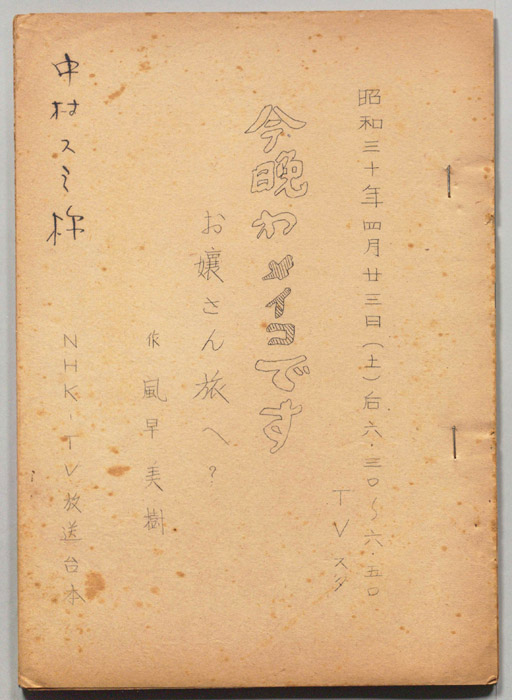 昭和三十年四月廿三日(土)后六.三〇〜六.五〇
TVスタ
今晩わメイコです
お嬢さん旅へ?
作 嵐早美樹
NHK-TV放送台本
中村スミ称